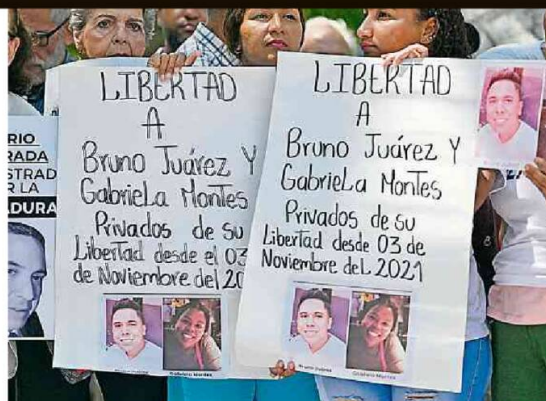 RIO
RADA
STRAD
R LA
ADURA
LIBERTAD
A
Bruno Juárez Y
Gabriela Montes
Privados de su
Libertad desde el 03
de Noviembre del 20
LIBERTAD
A
Bruno Juárez Y
GabrieLa Montes
Privados de su
Libertad desde 03 de
Noviembre deL 2021
Bruno Juárez
Gabriela Montes
Gabriela Montes